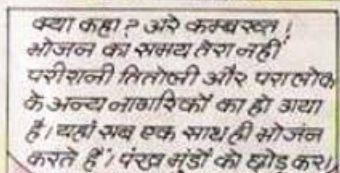 क्या कहा? अरे कम्बख्त!
भोजन का समय तेरा नहीं
परीरानी तितोली और परालोक
के अन्य नागरिकों का हो गया
है। यहां सब एक साथ ही भोजन
करते हैं। पंख मुंडों को छोड़ कर।